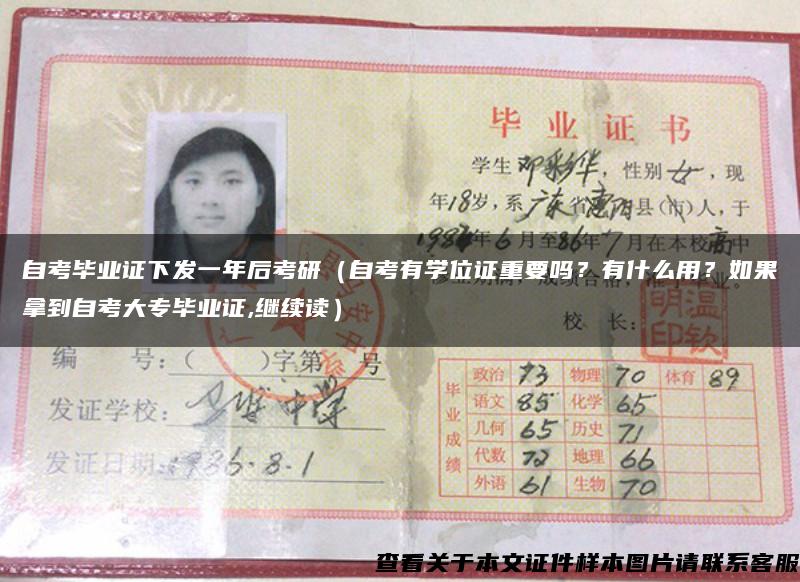 毕业证书
学生邓彩华，性别女，现
年18岁，系广东省惠阳县(市)人，于
年6月至86年7月在本校高中
自考毕业证下发一年后考研（自考有学位证重要吗？有什么用？如果
拿到自考大专毕业证,继续读）
校 长：
温钦明印
编 号：（ ）字第 号
发证学校：
中学
发证日期：1986.8.1
毕业成绩
政治 73 物理 70 体育 89
语文 85 化学 65
几何 65 历史 71
代数 72 地理 66
外语 61 生物 70
查看关于本文证件样本图片请联系客服